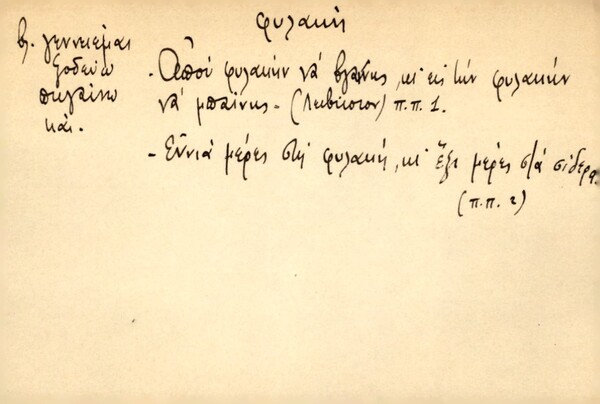 φυλακή
βλ. γεννειέμαι
ξοδεύω
πηγαίνω
και.
- Ἀπού φυλακήν νά βγαίνῃς, κι' εἰς τήν φυλακήν
νά μπαίνῃς - (Λειβίσιον) π.π 1.
- Ἐννιά μέρες στή φυλακή, κι' ἕξι μέρες στά σίδερα.
(π.π. 2)